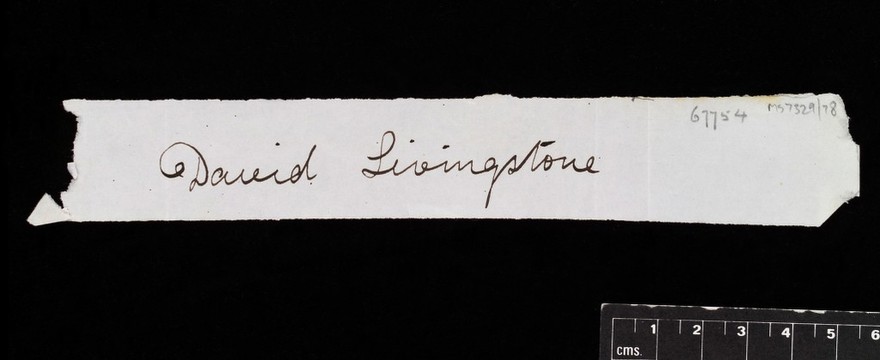 67754 MS7329/78
David Livingstone
1 2 3 4 5 6
cms.